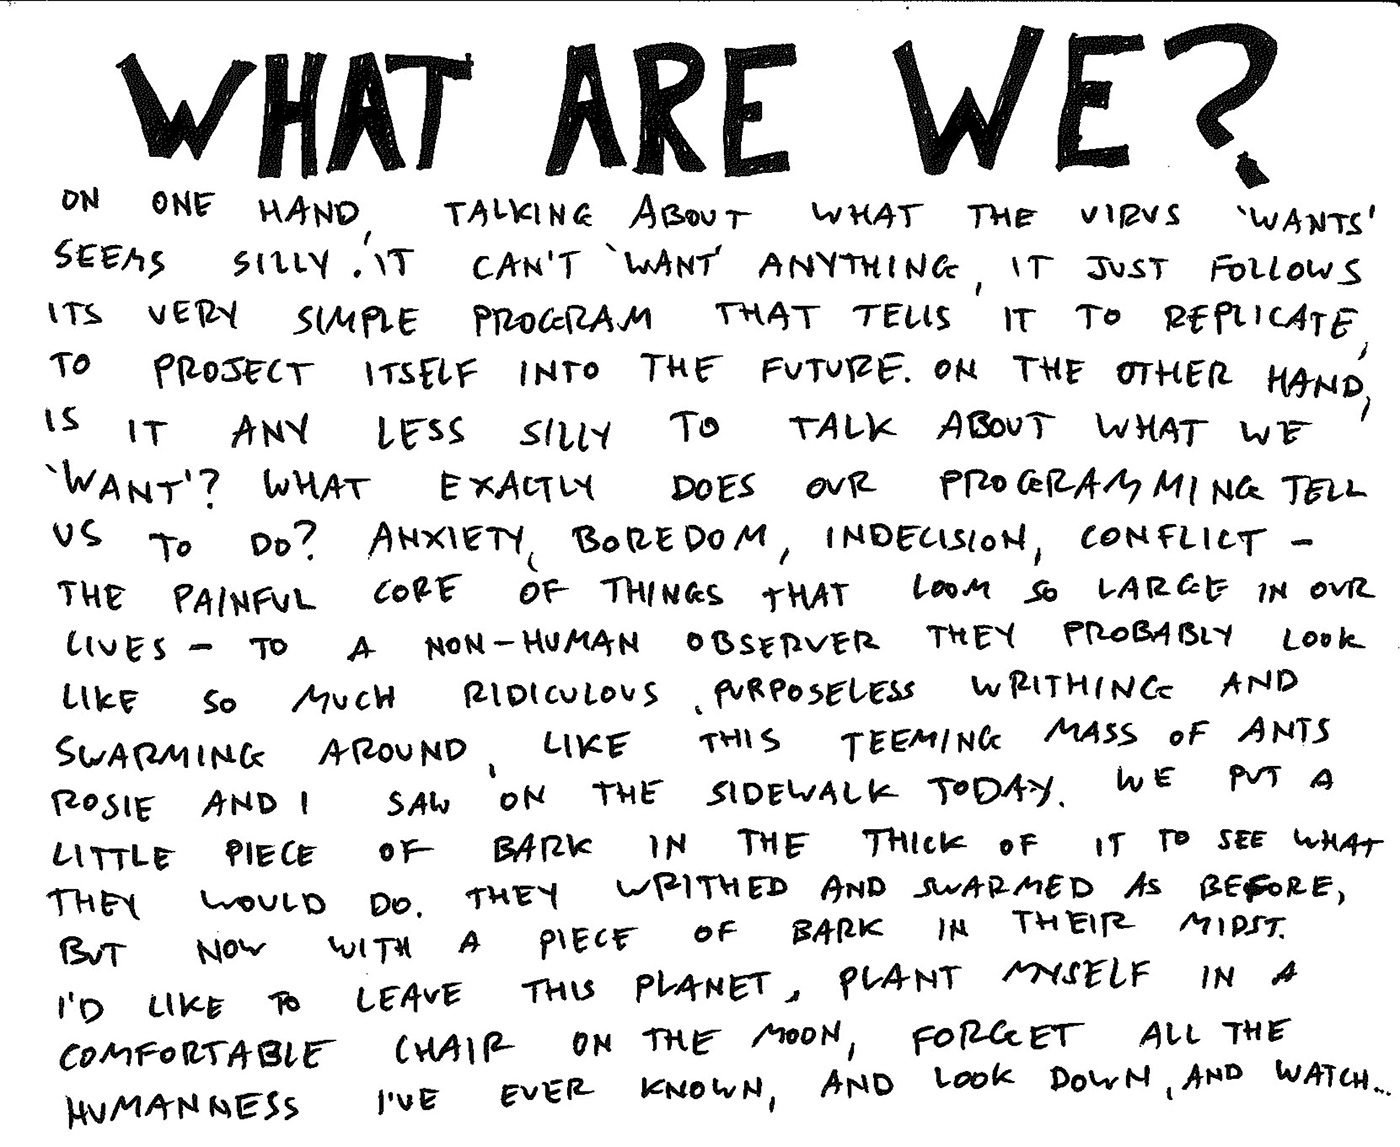 WHAT ARE WE?
ON ONE HAND, TALKING ABOUT WHAT THE VIRUS 'WANTS'
SEEMS SILLY. IT CAN'T 'WANT' ANYTHING, IT JUST FOLLOWS
ITS VERY SIMPLE PROGRAM THAT TELLS IT TO REPLICATE,
TO PROJECT ITSELF INTO THE FUTURE. ON THE OTHER HAND,
IS IT ANY LESS SILLY TO TALK ABOUT WHAT WE
'WANT'? WHAT EXACTLY DOES OUR PROGRAMMING TELL
US TO DO? ANXIETY, BOREDOM, INDECISION, CONFLICT –
THE PAINFUL CORE OF THINGS THAT LOOM SO LARGE IN OUR
LIVES – TO A NON-HUMAN OBSERVER THEY PROBABLY LOOK
LIKE SO MUCH RIDICULOUS, PURPOSELESS WRITHING AND
SWARMING AROUND, LIKE THIS TEEMING MASS OF ANTS
ROSIE AND I SAW ON THE SIDEWALK TODAY. WE PUT A
LITTLE PIECE OF BARK IN THE THICK OF IT TO SEE WHAT
THEY WOULD DO. THEY WRITHED AND SWARMED AS BEFORE,
BUT NOW WITH A PIECE OF BARK IN THEIR MIDST.
I'D LIKE TO LEAVE THIS PLANET, PLANT MYSELF IN A
COMFORTABLE CHAIR ON THE MOON, FORGET ALL THE
HUMANNESS I'VE EVER KNOWN, AND LOOK DOWN, AND WATCH...